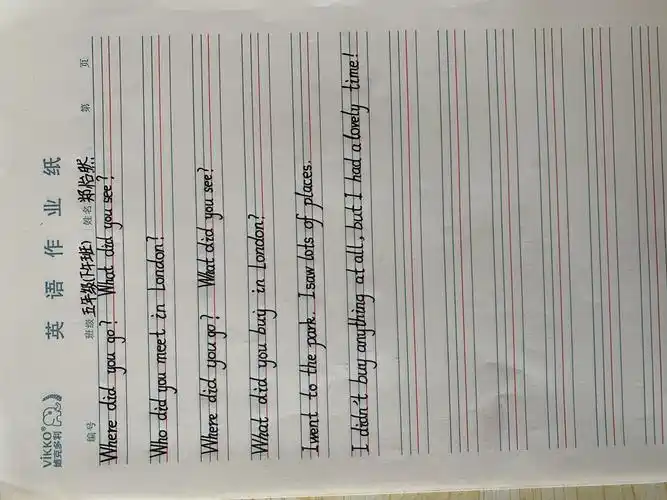 ViKKO®
维克多利
英语作业纸
编号 班级 五年级(下午班) 姓名 郑怡然 第 页
Where did you go? What did you see?
Who did you meet in London?
Where did you go? What did you see?
What did you buy in London?
I went to the park. I saw lots of places.
I didn't buy anything at all, but I had a lovely time!